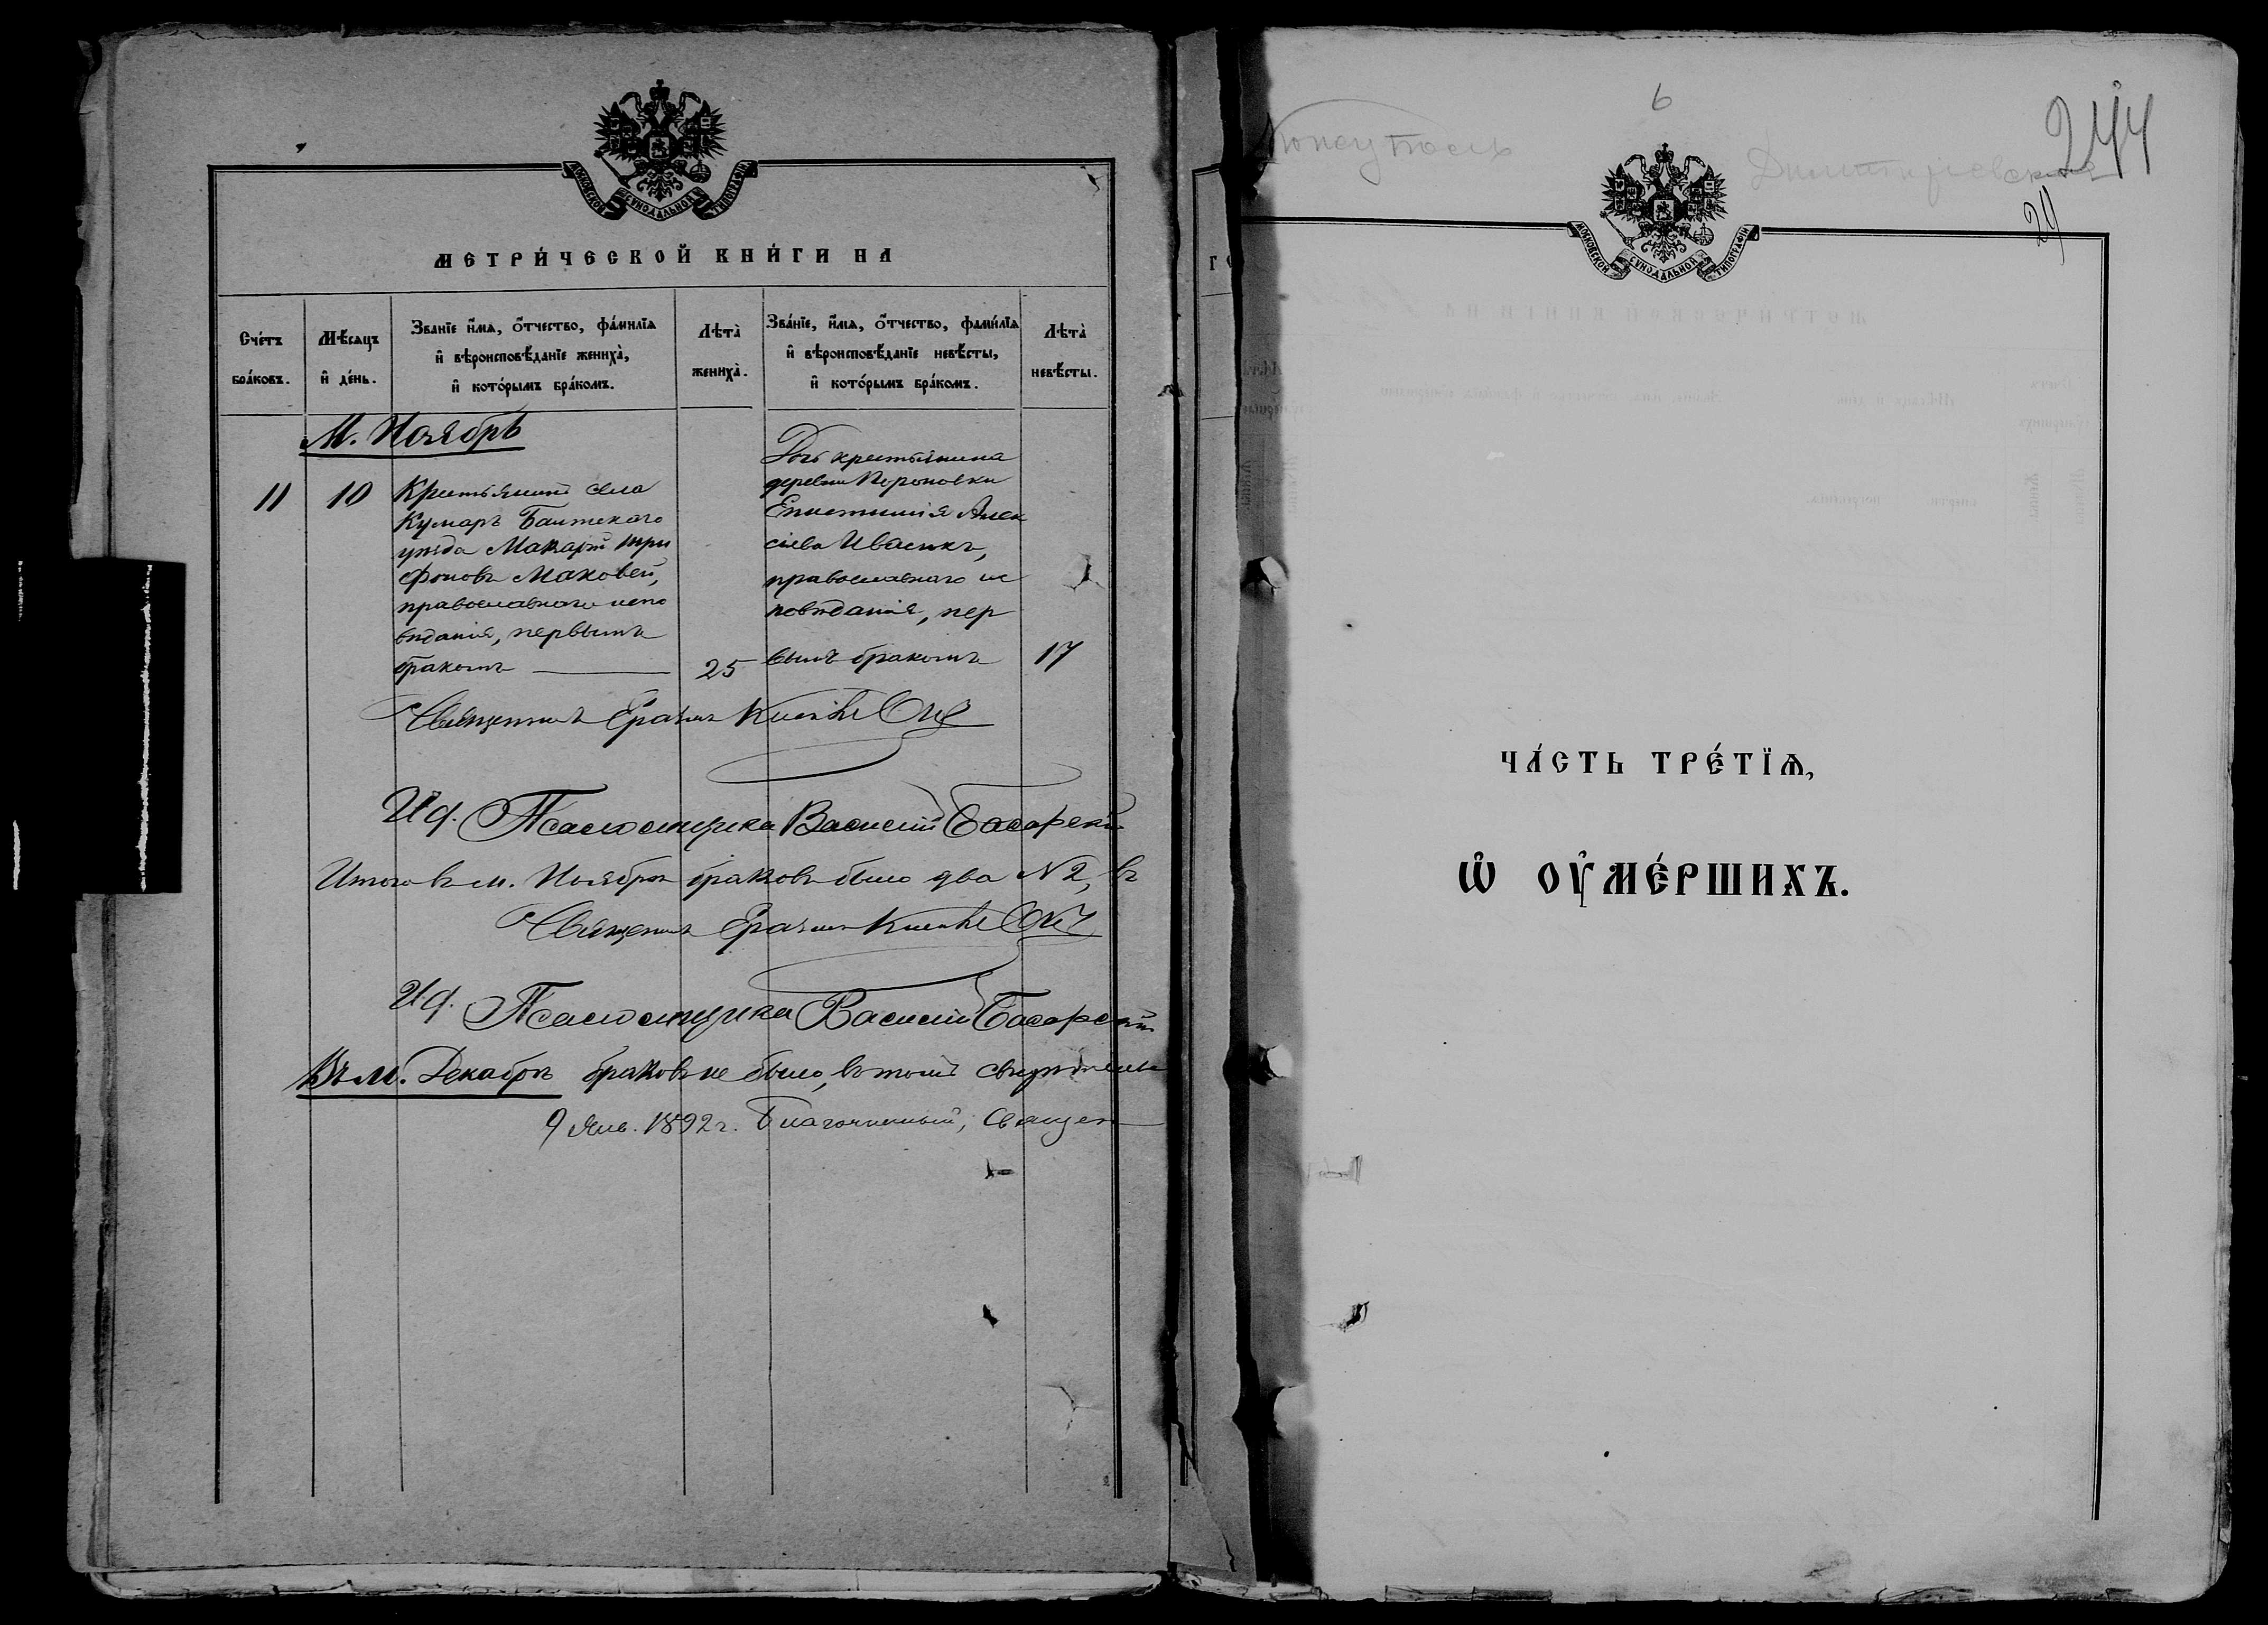 МОСКОВСКОЙ СѴНОДАЛЬНОЙ ТИПОГРАФІИ
МЕТРИ́ЧЕСКОЙ КНИ́ГИ НА
Сче́тъ бра́ковъ.
Мѣ́сяцъ и҆ де́нь.
Званїе и҆́мѧ, ѻ҆́тчество, фамилїѧ
и҆ вѣроисповѣ́данїе жениха̀,
и҆ кото́рымъ бра́комъ.
Лѣта̀ жениха̀.
Зва́нїе, и҆́мѧ, ѻ҆́тчество, фами́лїѧ
и҆ вѣроисповѣ́данїе невѣ́сты,
и҆ кото́рымъ бра́комъ.
Лѣта̀ невѣ́сты.
М. Ноябрь
11
10
Крестьянинъ села
Кумаръ Балтскаго
уѣзда Макарій Три
фоновъ Маковей,
православнаго испо
вѣданія, первымъ
бракомъ
25
Дочь крестьянина
деревни
Епистимія Алек
сіева Ивасикъ,
православнаго ис
повѣданія, пер
вымъ бракомъ
17
Священникъ
Ид. Псаломщика Василій
Итого въ м. Ноябрѣ браковъ было два N 2, въ
Священникъ
Ид. Псаломщика Василій
Въ м. Декабрѣ браковъ не было, въ томъ
9 Янв. 1892 г. Благочинный, Священ
6
244
24
МОСКОВСКОЙ СѴНОДАЛЬНОЙ ТИПОГРАФІИ
ЧА́СТЬ ТРЕ́ТЇѦ,
Ѡ҆ ОУ҆МЕ́РШИХЪ.